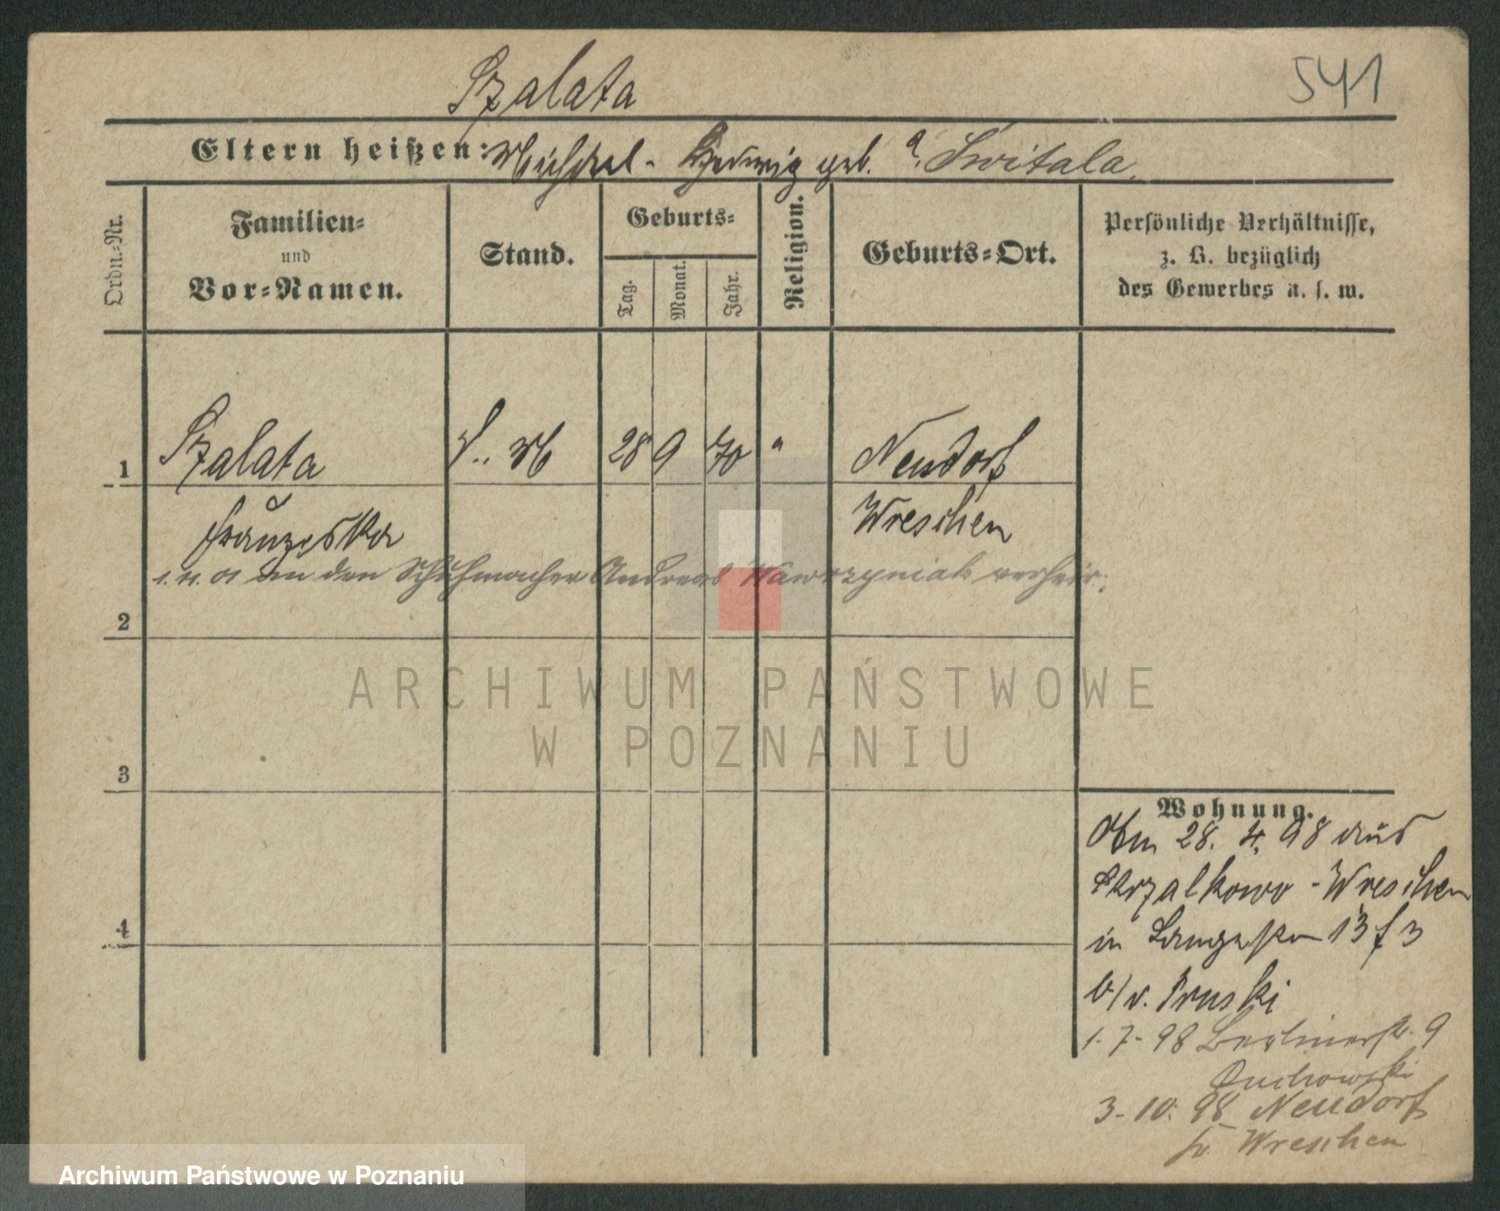 Szalata
541
Eltern heißen: Michael - Hedwig geb. Switala
Ordn.-Nr.
Familien-
und
Vor-Namen.
Stand.
Geburts-
Tag.
Monat.
Jahr.
Religion.
Geburts-Ort.
Persönliche Verhältnisse,
z. B. bezüglich
des Gewerbes u. s. w.
1 Szalata 28 9 70 " Neudorf
Franziska Wreschen
an den Schuhmacher Andreas Wawrzyniak verheir.
2
ARCHIWUM PAŃSTWOWE
W POZNANIU
3
4
Wohnung.
Am 28. 4. 98 aus
Strzalkowo - Wreschen
in Langestr 13
b/v. Pruski
1.7.98 Berlinerstr. 9
3.10.98 Neudorf
Wreschen
Archiwum Państwowe w Poznaniu